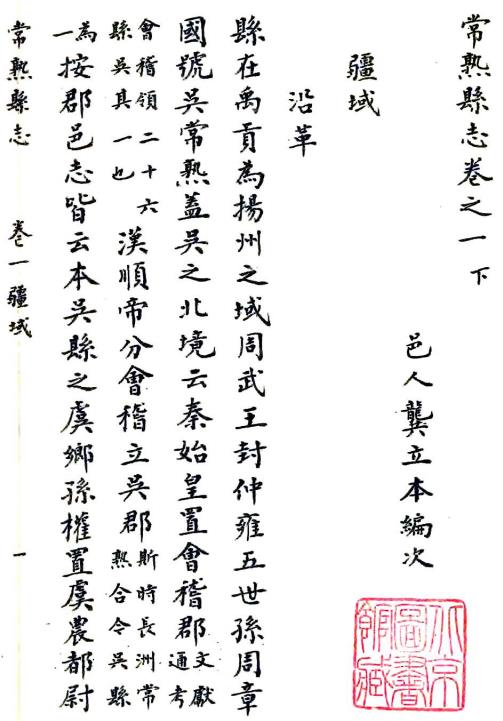 常熟縣志卷之一下
邑人龔立本編次
疆域
沿革
縣在禹貢為揚州之域周武王封仲雍五世孫周章
國號吳常熟蓋吳之北境云秦始皇置會稽郡文獻通考
會稽領二十六縣吳其一也漢順帝分會稽立吳郡斯時長洲常熟合令吳縣
為一按郡邑志皆云本吳縣之虞鄉孫權置虞農都尉
常熟縣志 卷一疆域 一
北京圖書館藏